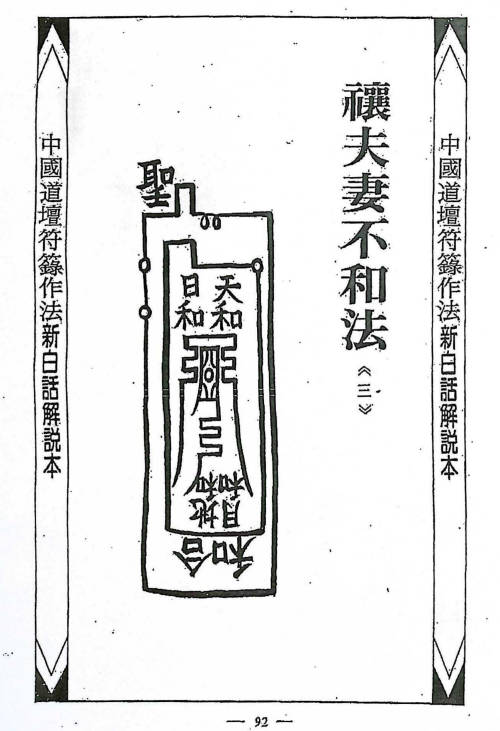 中國道壇符籙作法新白話解説本
禳夫妻不和法《三》
聖
天和
日和
月和
地和
和合
中國道壇符籙作法新白話解説本
— 92 —